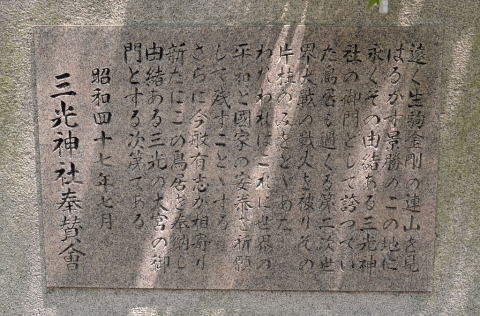 遠く生駒金剛の連山を見
はるかす景勝のこの地に
永くその由緒ある三光神
社の御門として誇つてい
た鳥居も過ぐる第二次世
界大戦の戦火を被りその
片柱のみをとどめた
われわれはこれに世界の
平和と國家の安泰を祈願
して残すことゝする
さらに今般有志が相寄り
新たにこの鳥居を奉納し
由緒ある三光の大宮の御
門とする次第である
昭和四十七年七月
三光神社奉賛會